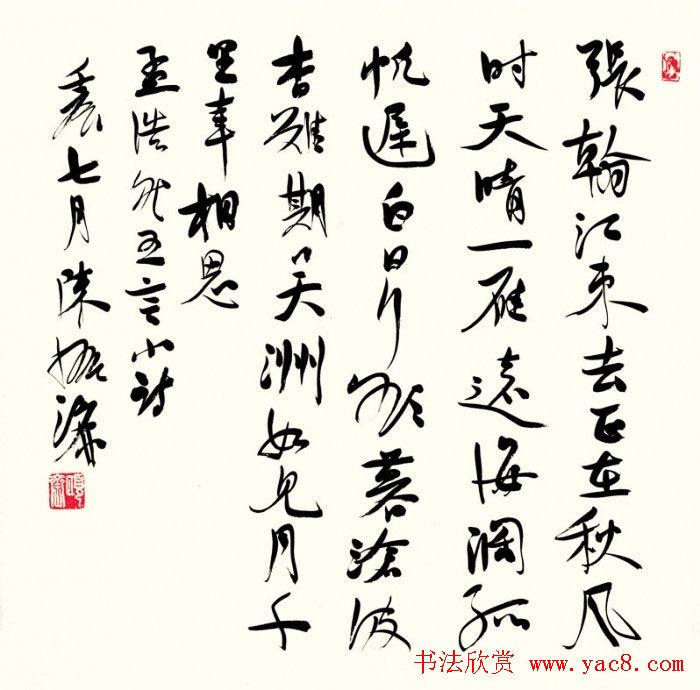 張翰江東去正在秋风
时天晴一雁遠海濶孤
帆遲白日行欲暮滄波
杳難期吴洲如見月千
里幸相思
孟浩然五言小詩
七月陳振濂
书法欣赏 www.yac8.com